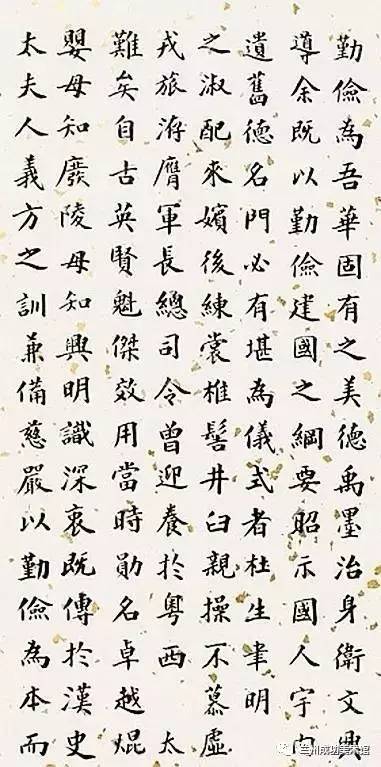 勤儉為吾華固有之美德禹墨治身衛文興
導余既以勤儉建國之綱要昭示國人宇内
遺舊德名門必有堪為儀式者杜生聿明
之淑配來嬪後練裳椎髻井臼親操不慕虛
戎旅洊膺軍長總司令曾迎養於粵西 太
難矣自古英賢魁傑效用當時勛名卓越焜
嬰母知廢陵母知興明識深衷既傳於漢史
太夫人義方之訓兼備慈嚴以勤儉為本而
兰州成功美术馆